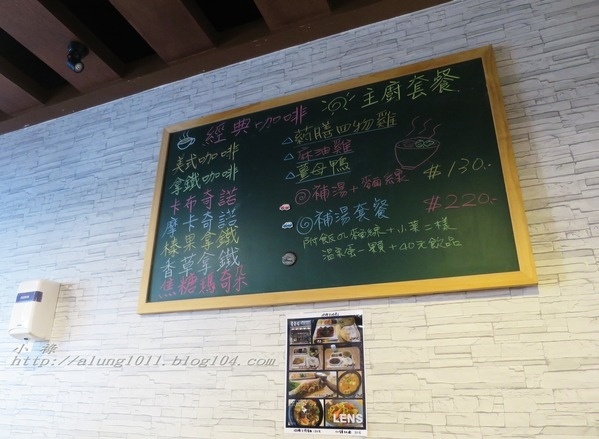 經典咖啡
美式咖啡
拿鐵咖啡
卡布奇諾
摩卡奇諾
榛果拿鐵
香草拿鐵
焦糖瑪奇朵
主廚套餐
藥膳四物雞
麻油雞
薑母鴨
補湯+麵線 #130.-
補湯套餐 #220.-
附飯or麵線+小菜二樣
溫泉蛋一顆+40元飲品
LENS
小 祿
http://alung1011.blog104.com